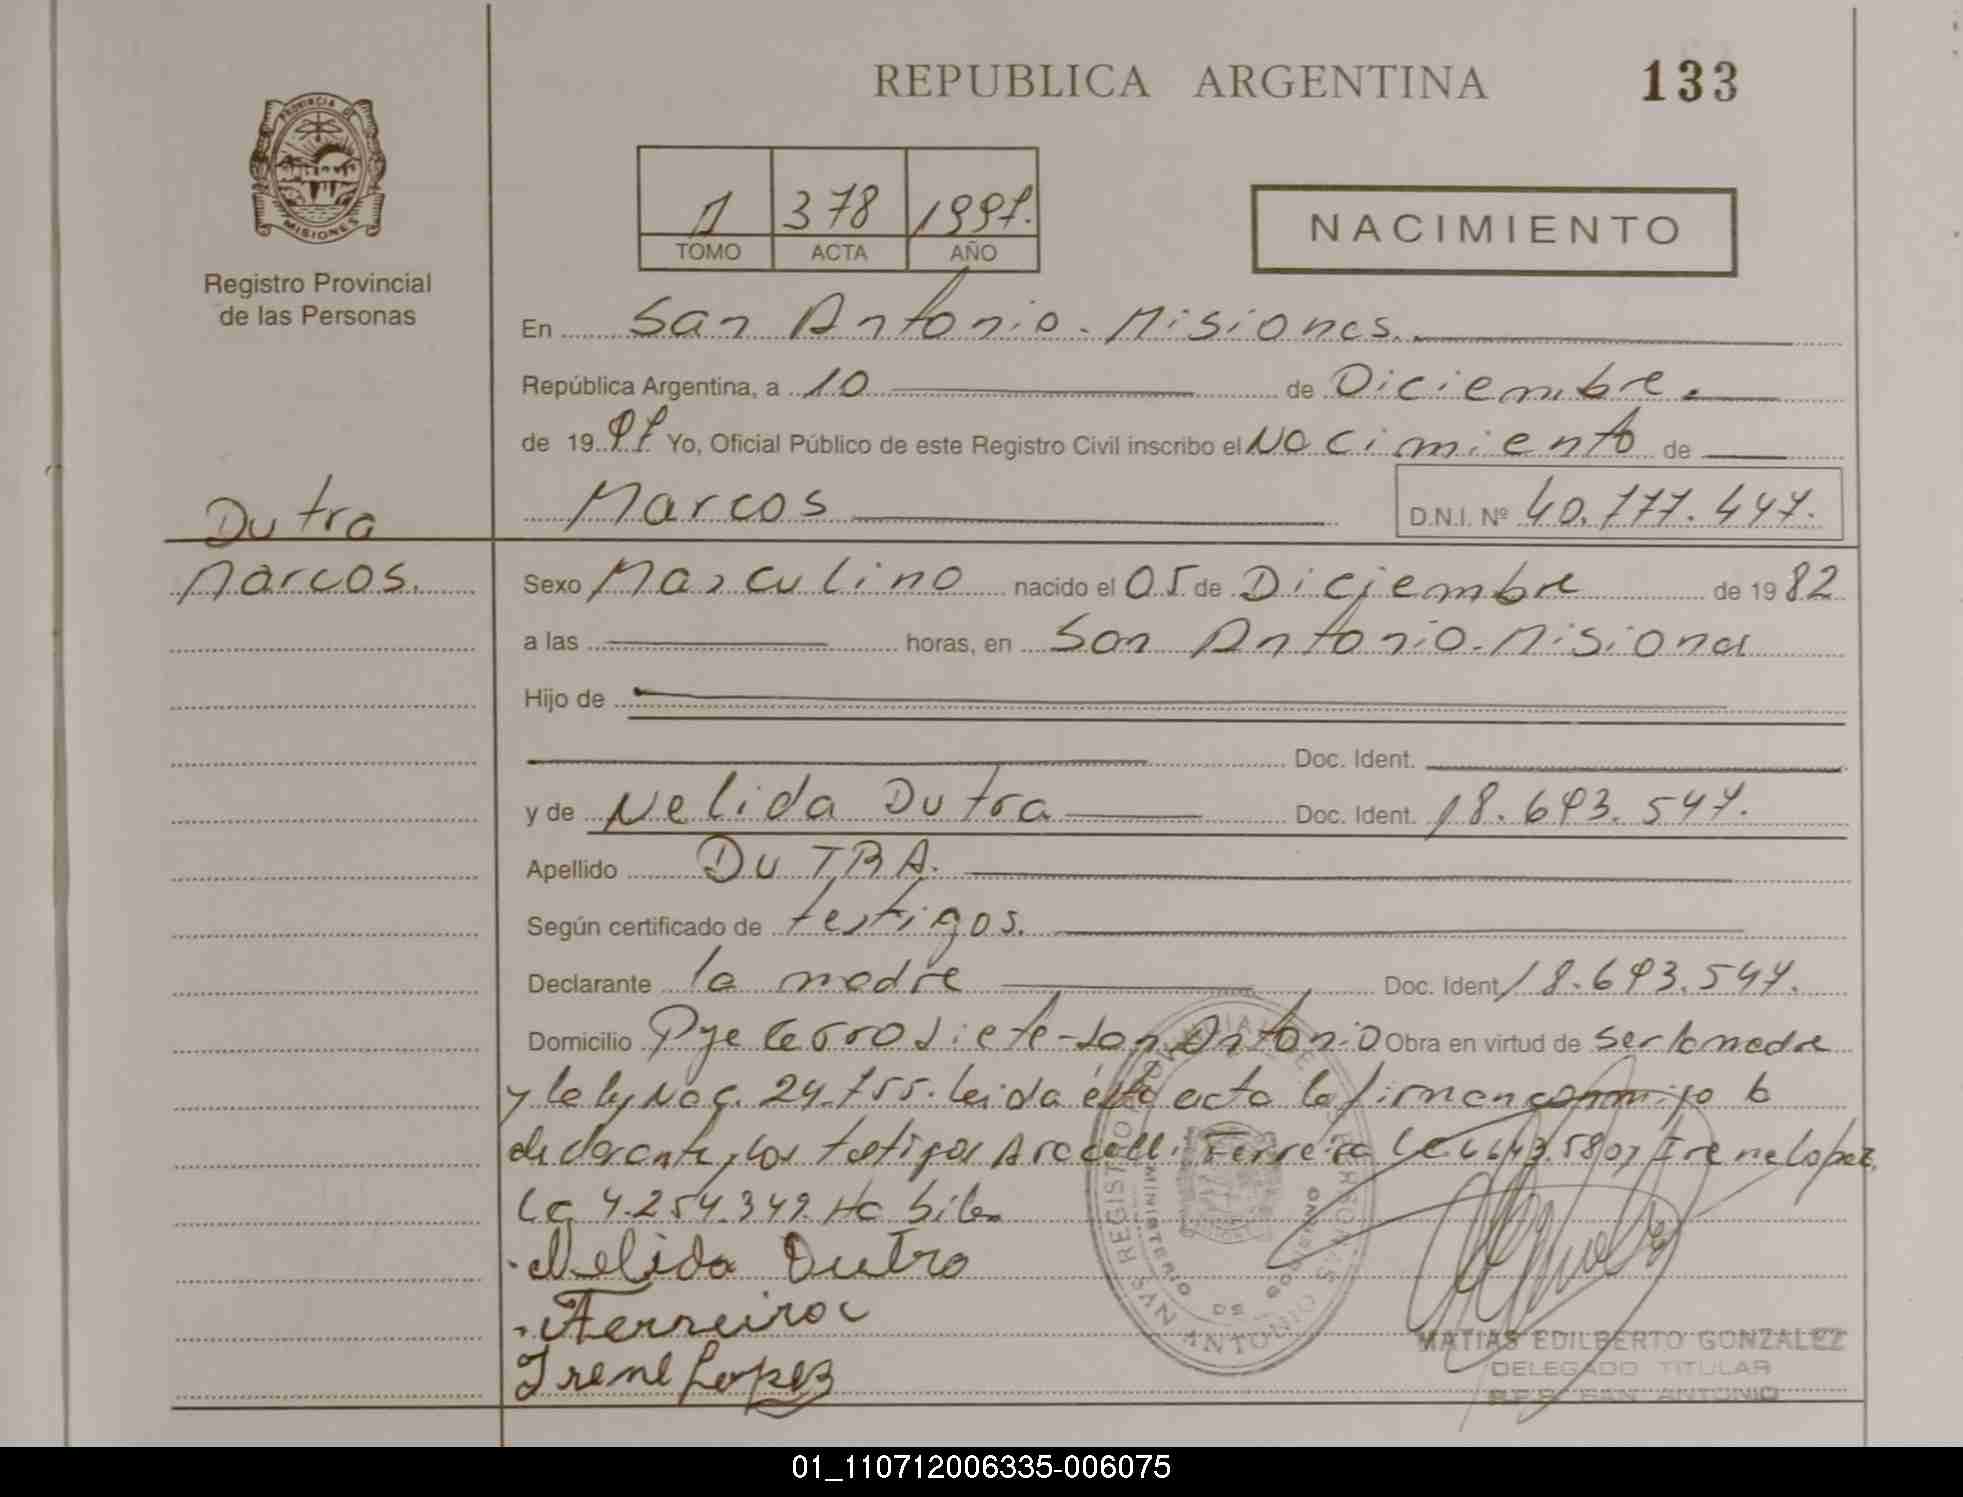 REPUBLICA ARGENTINA 133
PROVINCIA DE MISIONES
Registro Provincial
de las Personas
1 378 1997.
TOMO ACTA AÑO
NACIMIENTO
En San Antonio - Misiones.
República Argentina, a 10 de Diciembre.
de 1997 Yo, Oficial Público de este Registro Civil inscribo el Nacimiento de
Marcos D.N.I. Nº 40.777.447.
Dutra
Marcos.
Sexo Masculino nacido el 05 de Diciembre de 1982
a las horas, en San Antonio - Misiones
Hijo de
Doc. Ident.
y de Nelida Dutra Doc. Ident. 18.693.547.
Apellido DUTRA.
Según certificado de testigos.
Declarante la madre Doc. Ident 18.693.547.
Domicilio Pje Cerro Siete - San Antonio Obra en virtud de ser la madre
y la ley Nac. 24.755. Leida ésta acta la firman conmigo la
declarante, los testigos Aracelli Ferreira LC 6643.580 y Irene Lopez
LC 4.254.349. Habiles
Nelida Dutra
Ferreira
Irene Lopez
REGISTRO PROVINCIAL DE LAS PERSONAS
MINISTERIO DE GOBIERNO
SAN ANTONIO
MATIAS EDILBERTO GONZALEZ
DELEGADO TITULAR
R.P.P. SAN ANTONIO
01_110712006335-006075